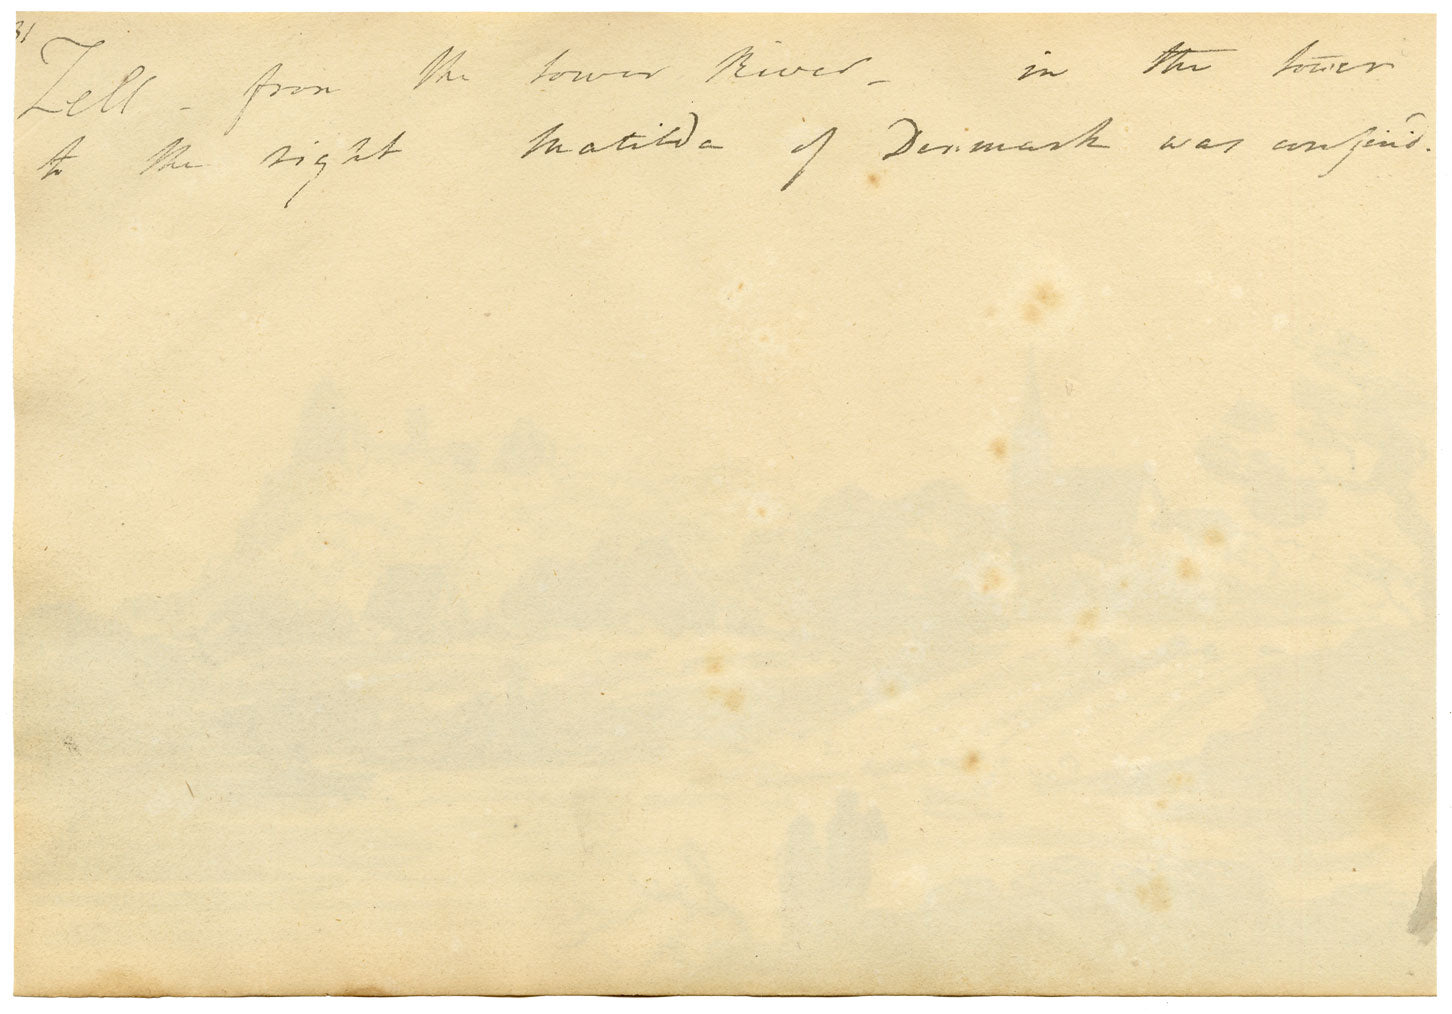 31
Zell - from the lower River - in the tower
to the right Matilda of Denmark was confin'd.